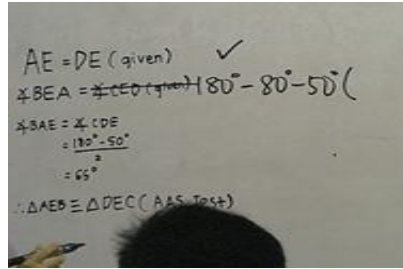 AE = DE (given) ✓
∡BEA = ∡CED (given) 180° - 80° - 50° (
∡BAE = ∡CDE
= 180° - 50°
2
= 65°
∴ △AEB ≡ △DEC (AAS Test)